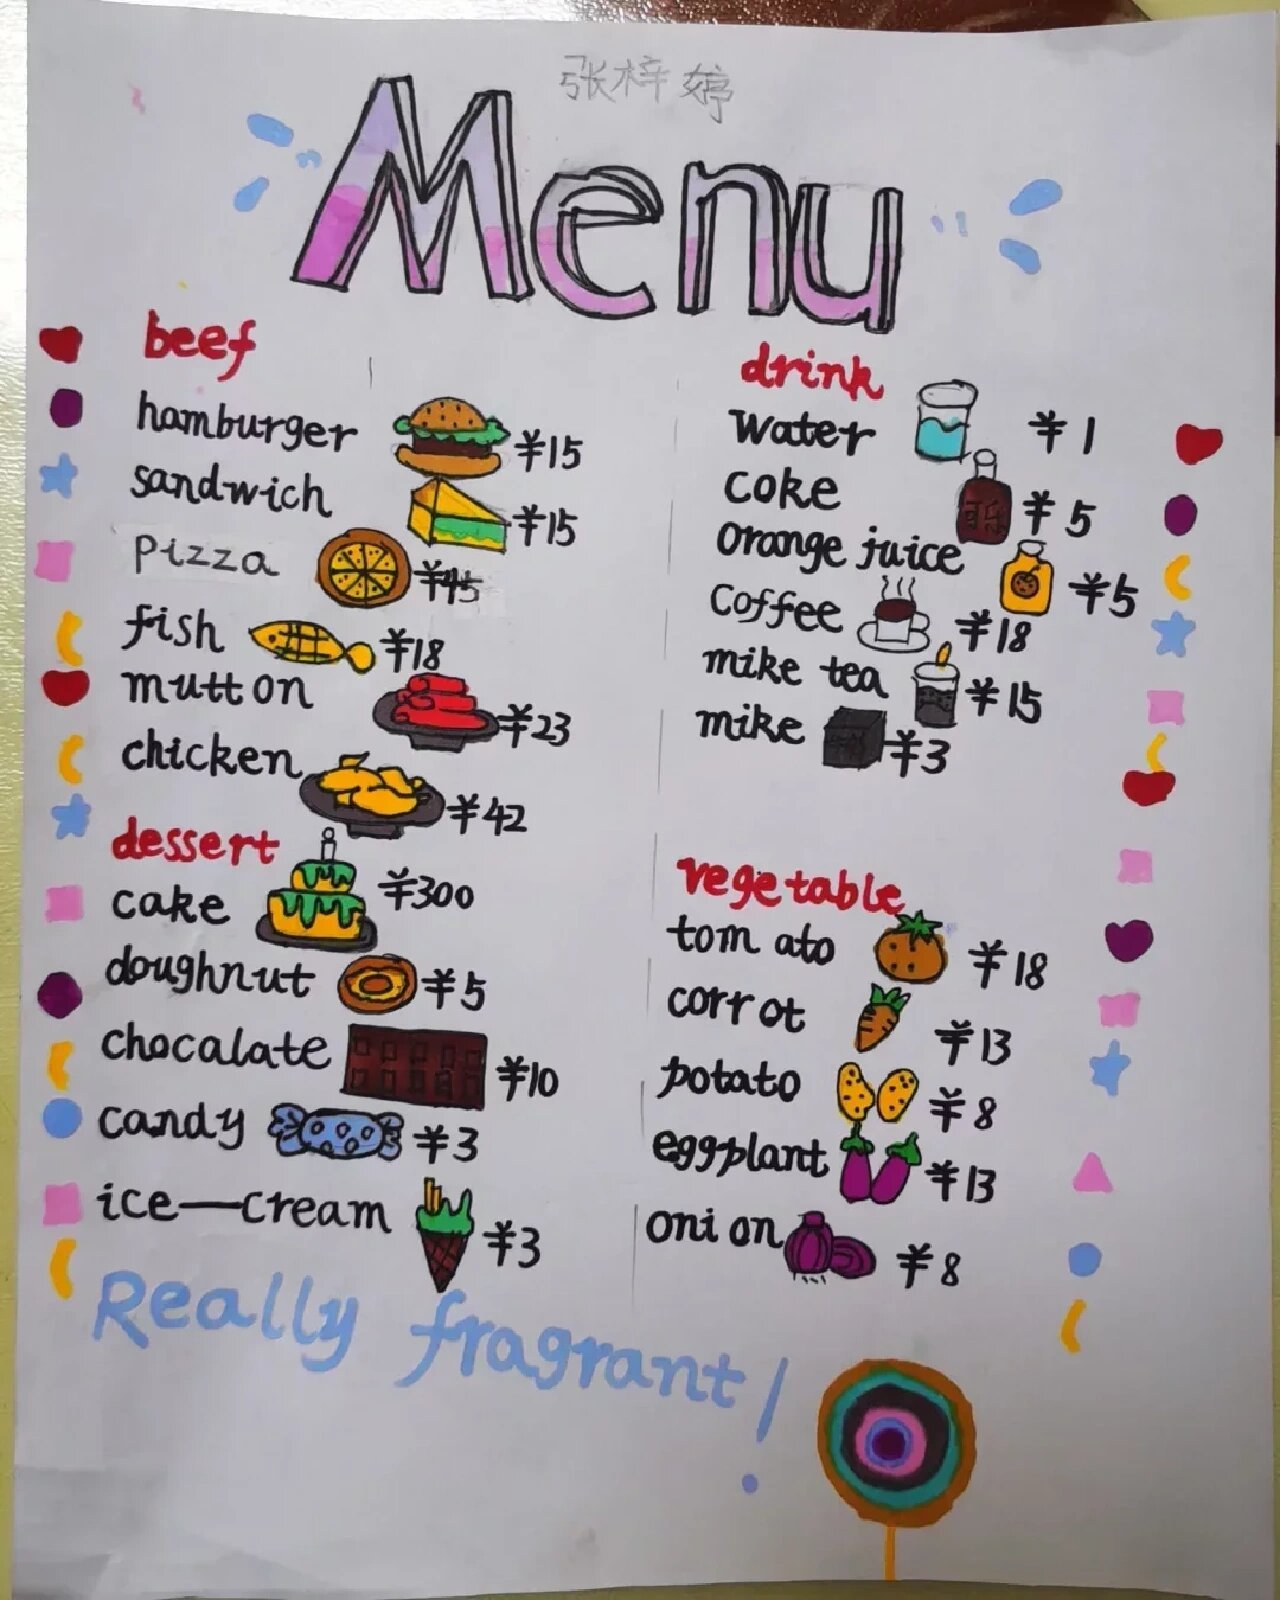 张梓婷
Menu
beef
hamburger ¥15
sandwich ¥15
pizza ¥45
fish ¥18
mutton ¥23
chicken ¥42
dessert
cake ¥300
doughnut ¥5
chocalate ¥10
candy ¥3
ice—cream ¥3
drink
water ¥1
coke ¥5
orange juice ¥5
coffee ¥18
mike tea ¥15
mike ¥3
vegetable
tomato ¥18
corrot ¥13
potato ¥8
eggplant ¥13
onion ¥8
Really fragrant!